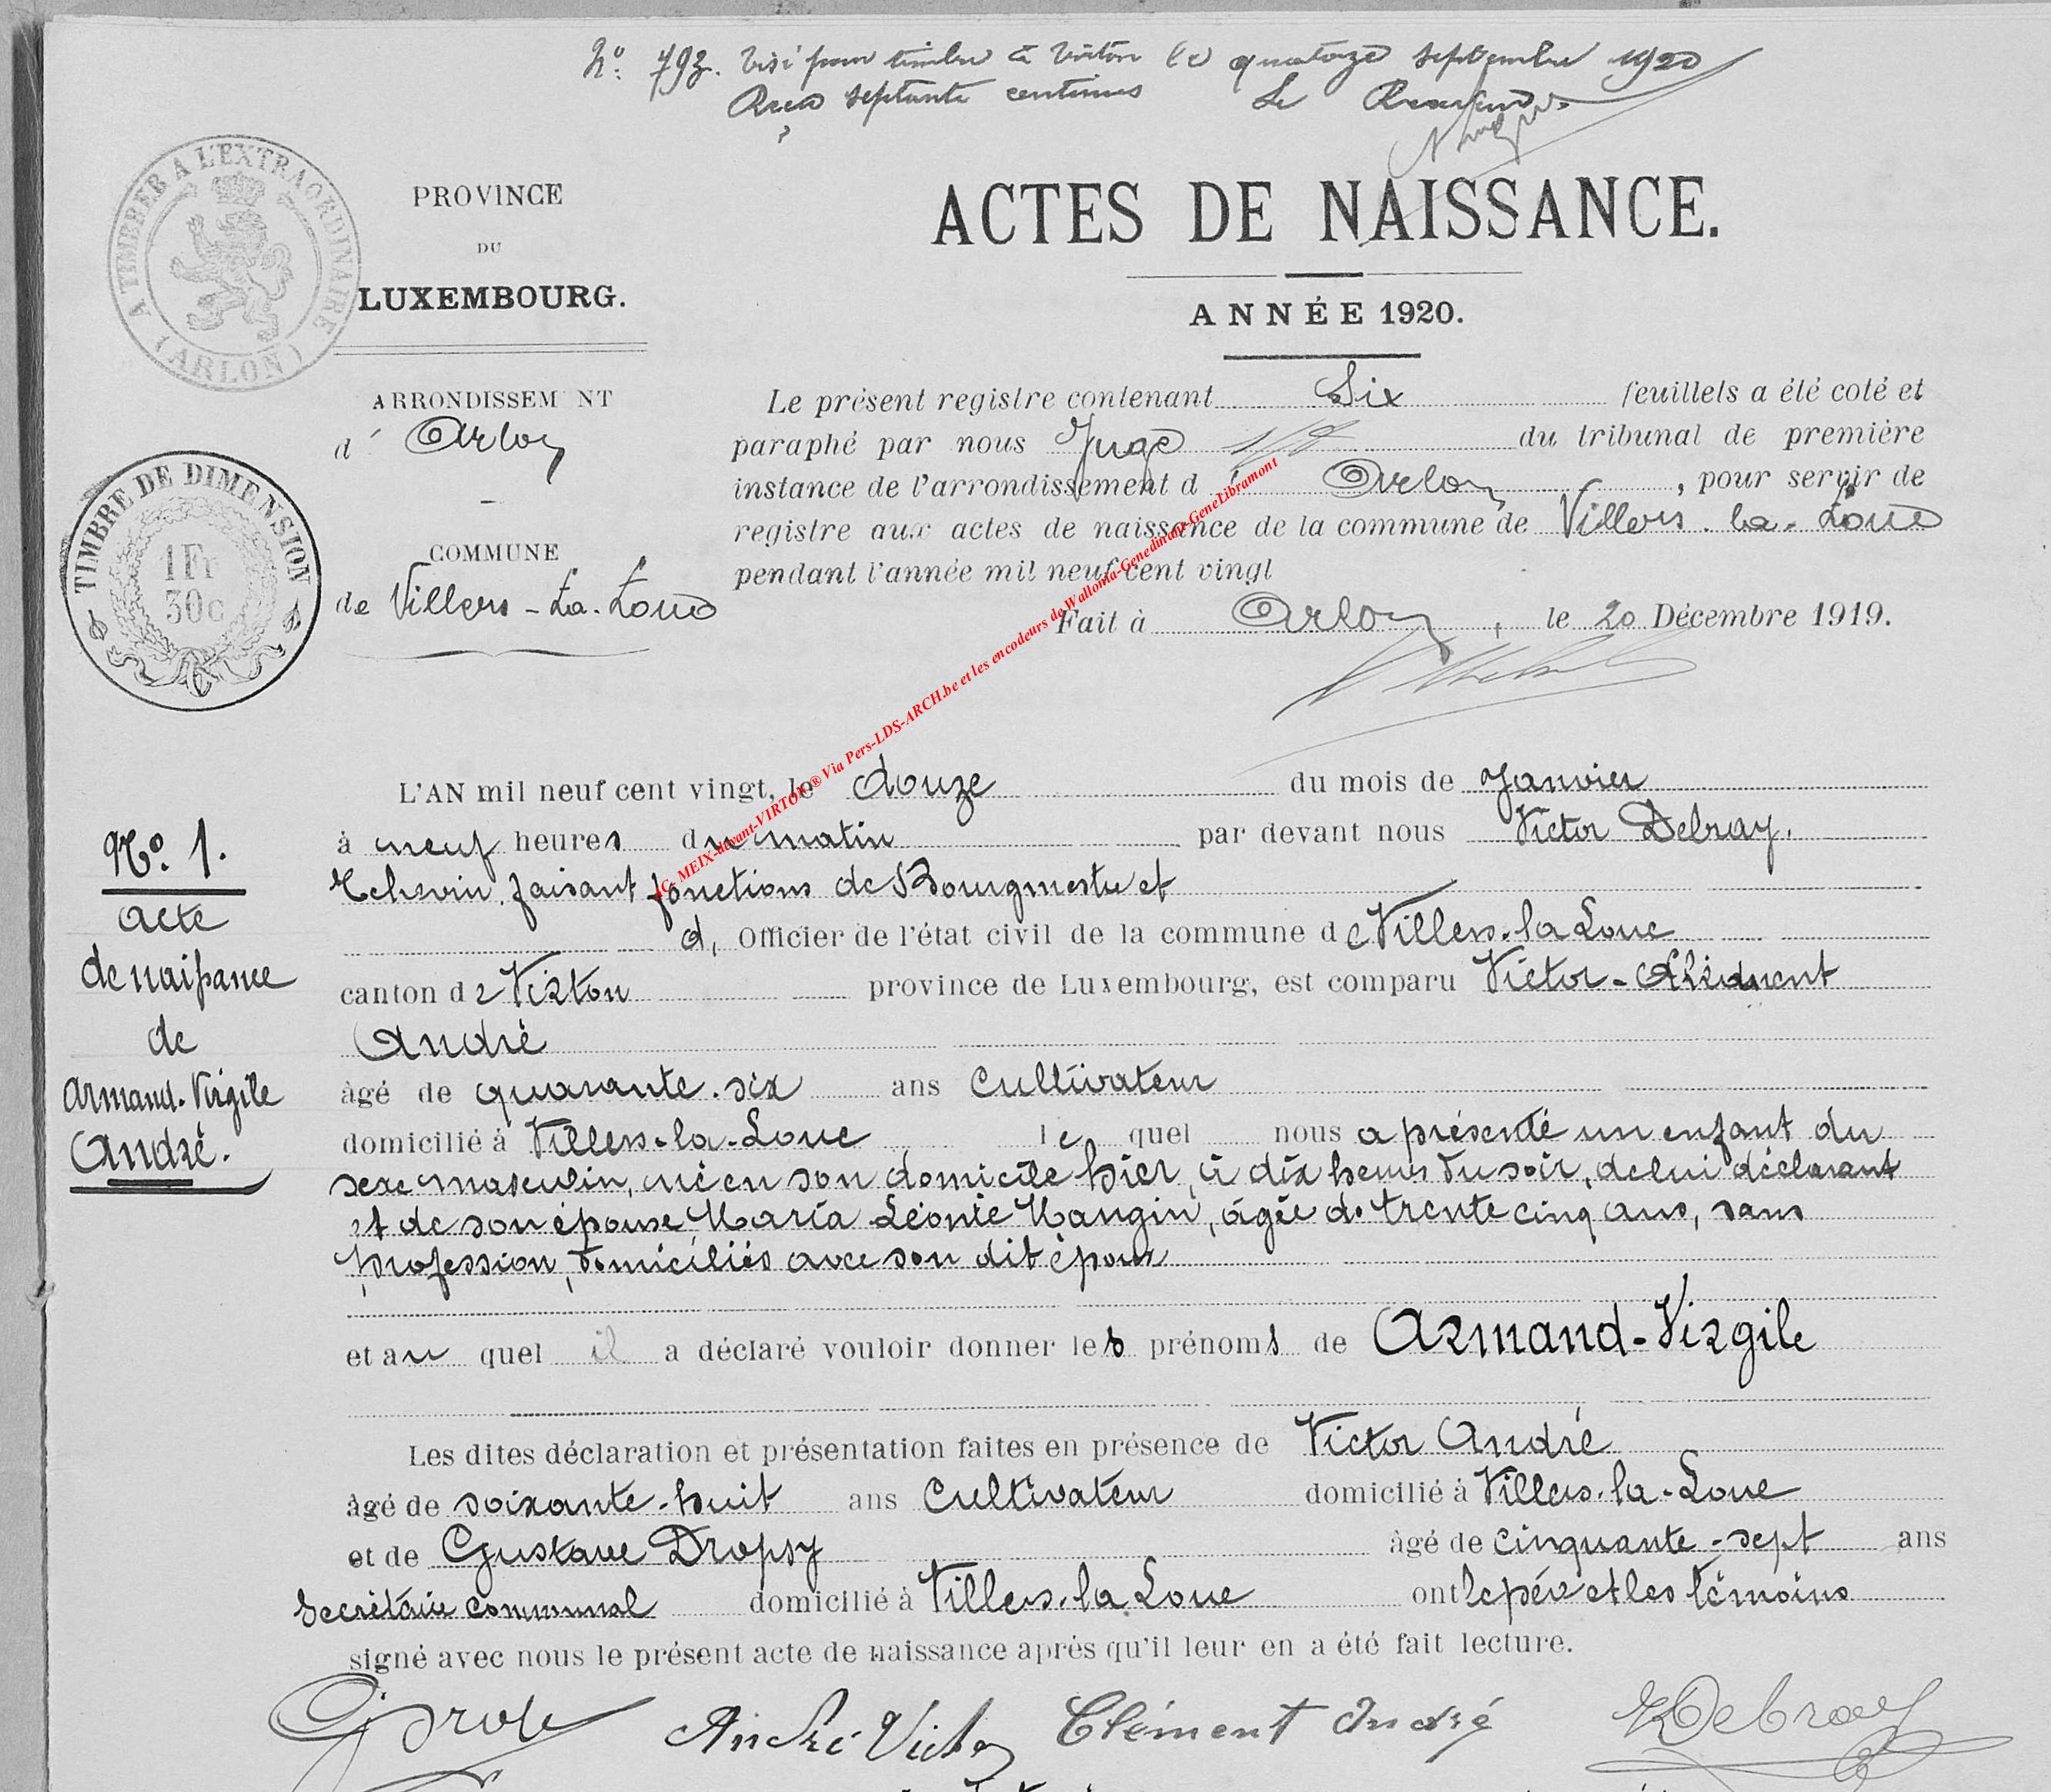 No: 793. Visé pour timbre à Virton le quatorze septembre 1920
Reçu septante centimes Le Receveur
A TIMBRER A L'EXTRAORDINAIRE
(ARLON)
PROVINCE
DU
LUXEMBOURG.
ACTES DE NAISSANCE.
ANNÉE 1920.
ARRONDISSEM NT
d' Arlon
TIMBRE DE DIMENSION
1Fr
30c
COMMUNE
de Villers-La-Loue
Le présent registre contenant Six feuillets a été coté et
paraphé par nous Juge du tribunal de première
instance de l'arrondissement d' Arlon, pour servir de
registre aux actes de naissance de la commune de Villers-la-Loue
pendant l'année mil neuf cent vingt
Fait à Arlon, le 20 Décembre 1919.
C. MEIX-devant-VIRTON® Via Pers-LDS-ARCH.be et les encodeurs de Wallonia-Genedinant-GeneLibramont
L'AN mil neuf cent vingt, le douze du mois de Janvier
à neuf heures du matin par devant nous Victor Debray,
Echevin faisant fonctions de Bourgmestre et
d, Officier de l'état civil de la commune de Villers-la-Loue
canton de Virton province de Luxembourg, est comparu Victor-Clément
André
âgé de quarante-six ans Cultivateur
domicilié à Villers-la-Loue lequel nous a présenté un enfant du
sexe masculin, né en son domicile hier, à dix heures du soir, de lui déclarant
et de son épouse Maria Léonie Mangin, âgée de trente cinq ans, sans
profession, domiciliés avec son dit époux
et au quel il a déclaré vouloir donner les prénoms de Armand-Virgile
No. 1.
Acte
de naissance
de
Armand-Virgile
André.
Les dites déclaration et présentation faites en présence de Victor André
âgé de soixante-huit ans Cultivateur domicilié à Villers-la-Loue
et de Gustave Dropsy âgé de cinquante-sept ans
Secrétaire communal domicilié à Villers-la Loue ont le père et les témoins
signé avec nous le présent acte de naissance après qu'il leur en a été fait lecture.
André Victor Clément André VDebray